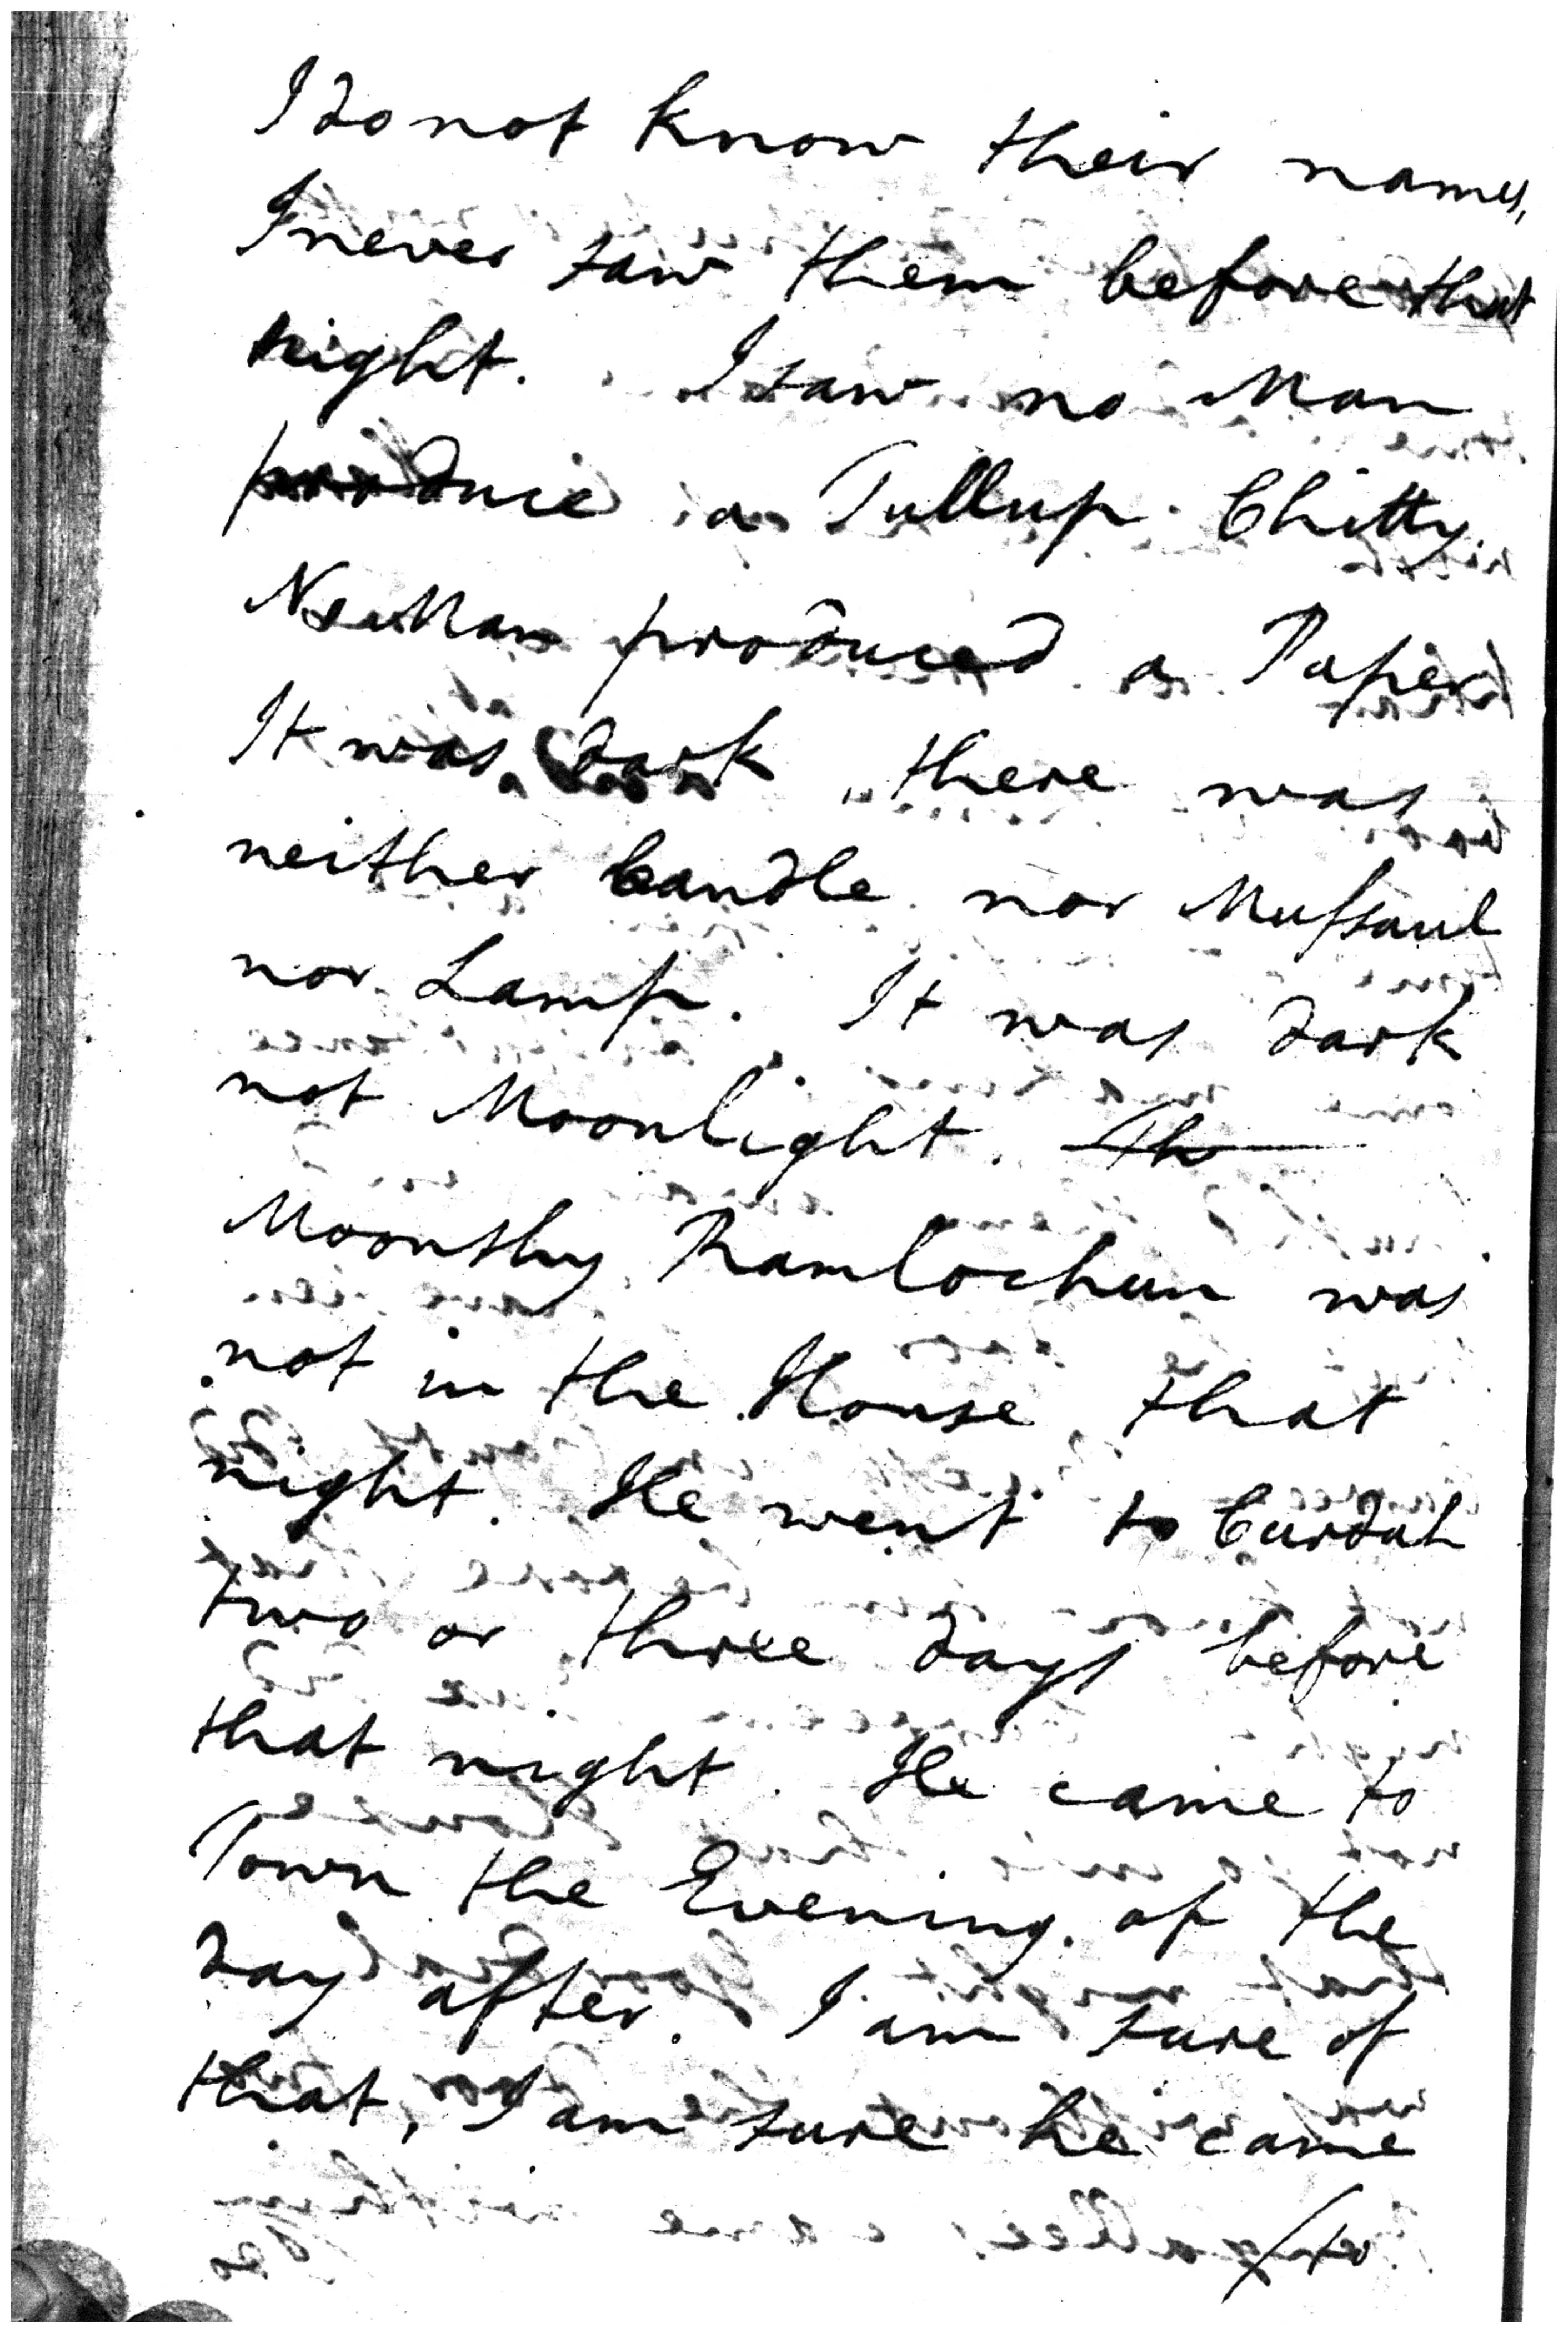 I do not know their names,
I never saw them before that
night. I saw no Man
produce a Tullup Chitty.
No Man produced a Paper
It was dark, there was
neither Candle nor Mussaul
nor Lamp. It was dark
not Moonlight. Th
Moonshy Ramlochun was
not in the House that
night. He went to Curdah
two or three days before
that night. He came to
Town the Evening of the
day after. I am sure of
that, I am sure he came
/to